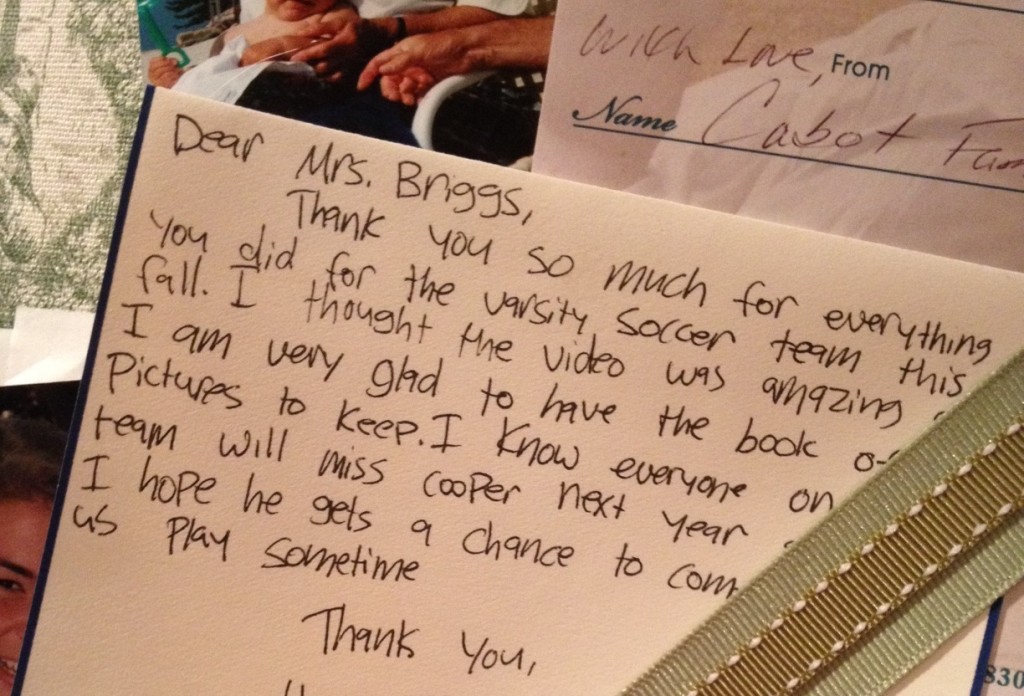 With Love, From
Name Cabot
Dear Mrs. Briggs,
Thank you so much for everything
you did for the varsity soccer team this
fall. I thought the video was amazing
I am very glad to have the book
Pictures to keep. I know everyone on
team will miss cooper next year
I hope he gets a chance to com
us play sometime
Thank you,
830